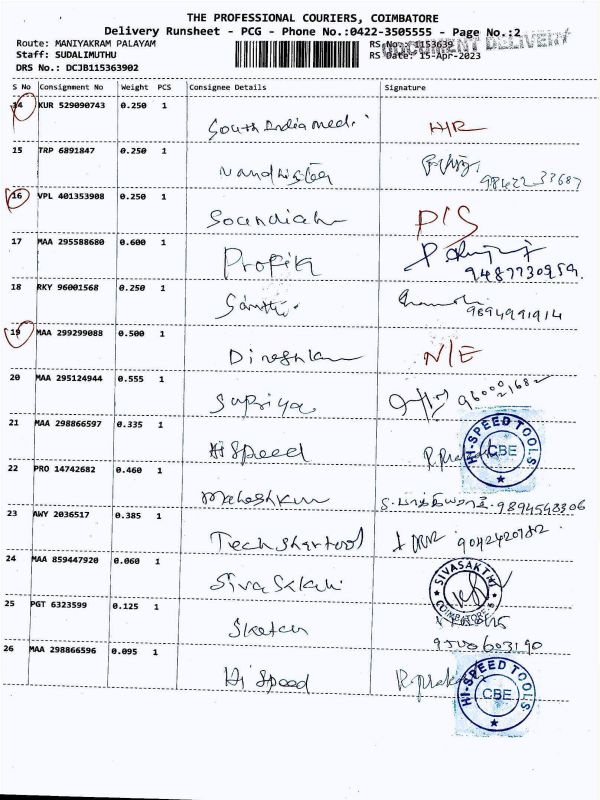 THE PROFESSIONAL COURIERS, COIMBATORE
Delivery Runsheet - PCG - Phone No.:0422-3505555 - Page No.:2
Route: MANIYAKRAM PALAYAM RS No.: 1153639 DOCUMENT DELIVERY
Staff: SUDALIMUTHU RS Date: 15-Apr-2023
DRS No.: DCJB115363902
S No Consignment No Weight PCS Consignee Details Signature
14 KUR 529090743 0.250 1
South India medi H/R
15 TRP 6891847 0.250 1
Nandhistea 98422 33687
16 VPL 401353908 0.250 1
P/S
17 MAA 295588680 0.600 1
Profik
9487730959
18 RKY 96001568 0.250 1
9894991914
19 MAA 299299088 0.500 1
N/E
20 MAA 295124944 0.555 1
Supriya 9600021682
21 MAA 298866597 0.335 1
Hi Speed HI-SPEED TOOLS CBE
22 PRO 14742682 0.460 1
Maheshkum 9894548306
23 AWY 2036517 0.385 1
9042420782
24 MAA 859447920 0.060 1
Siva Sakthi SIVASAKTHI COIMBATORE
25 PGT 6323599 0.125 1
Sketch
26 MAA 298866596 0.095 1
Hi Speed HI-SPEED TOOLS CBE